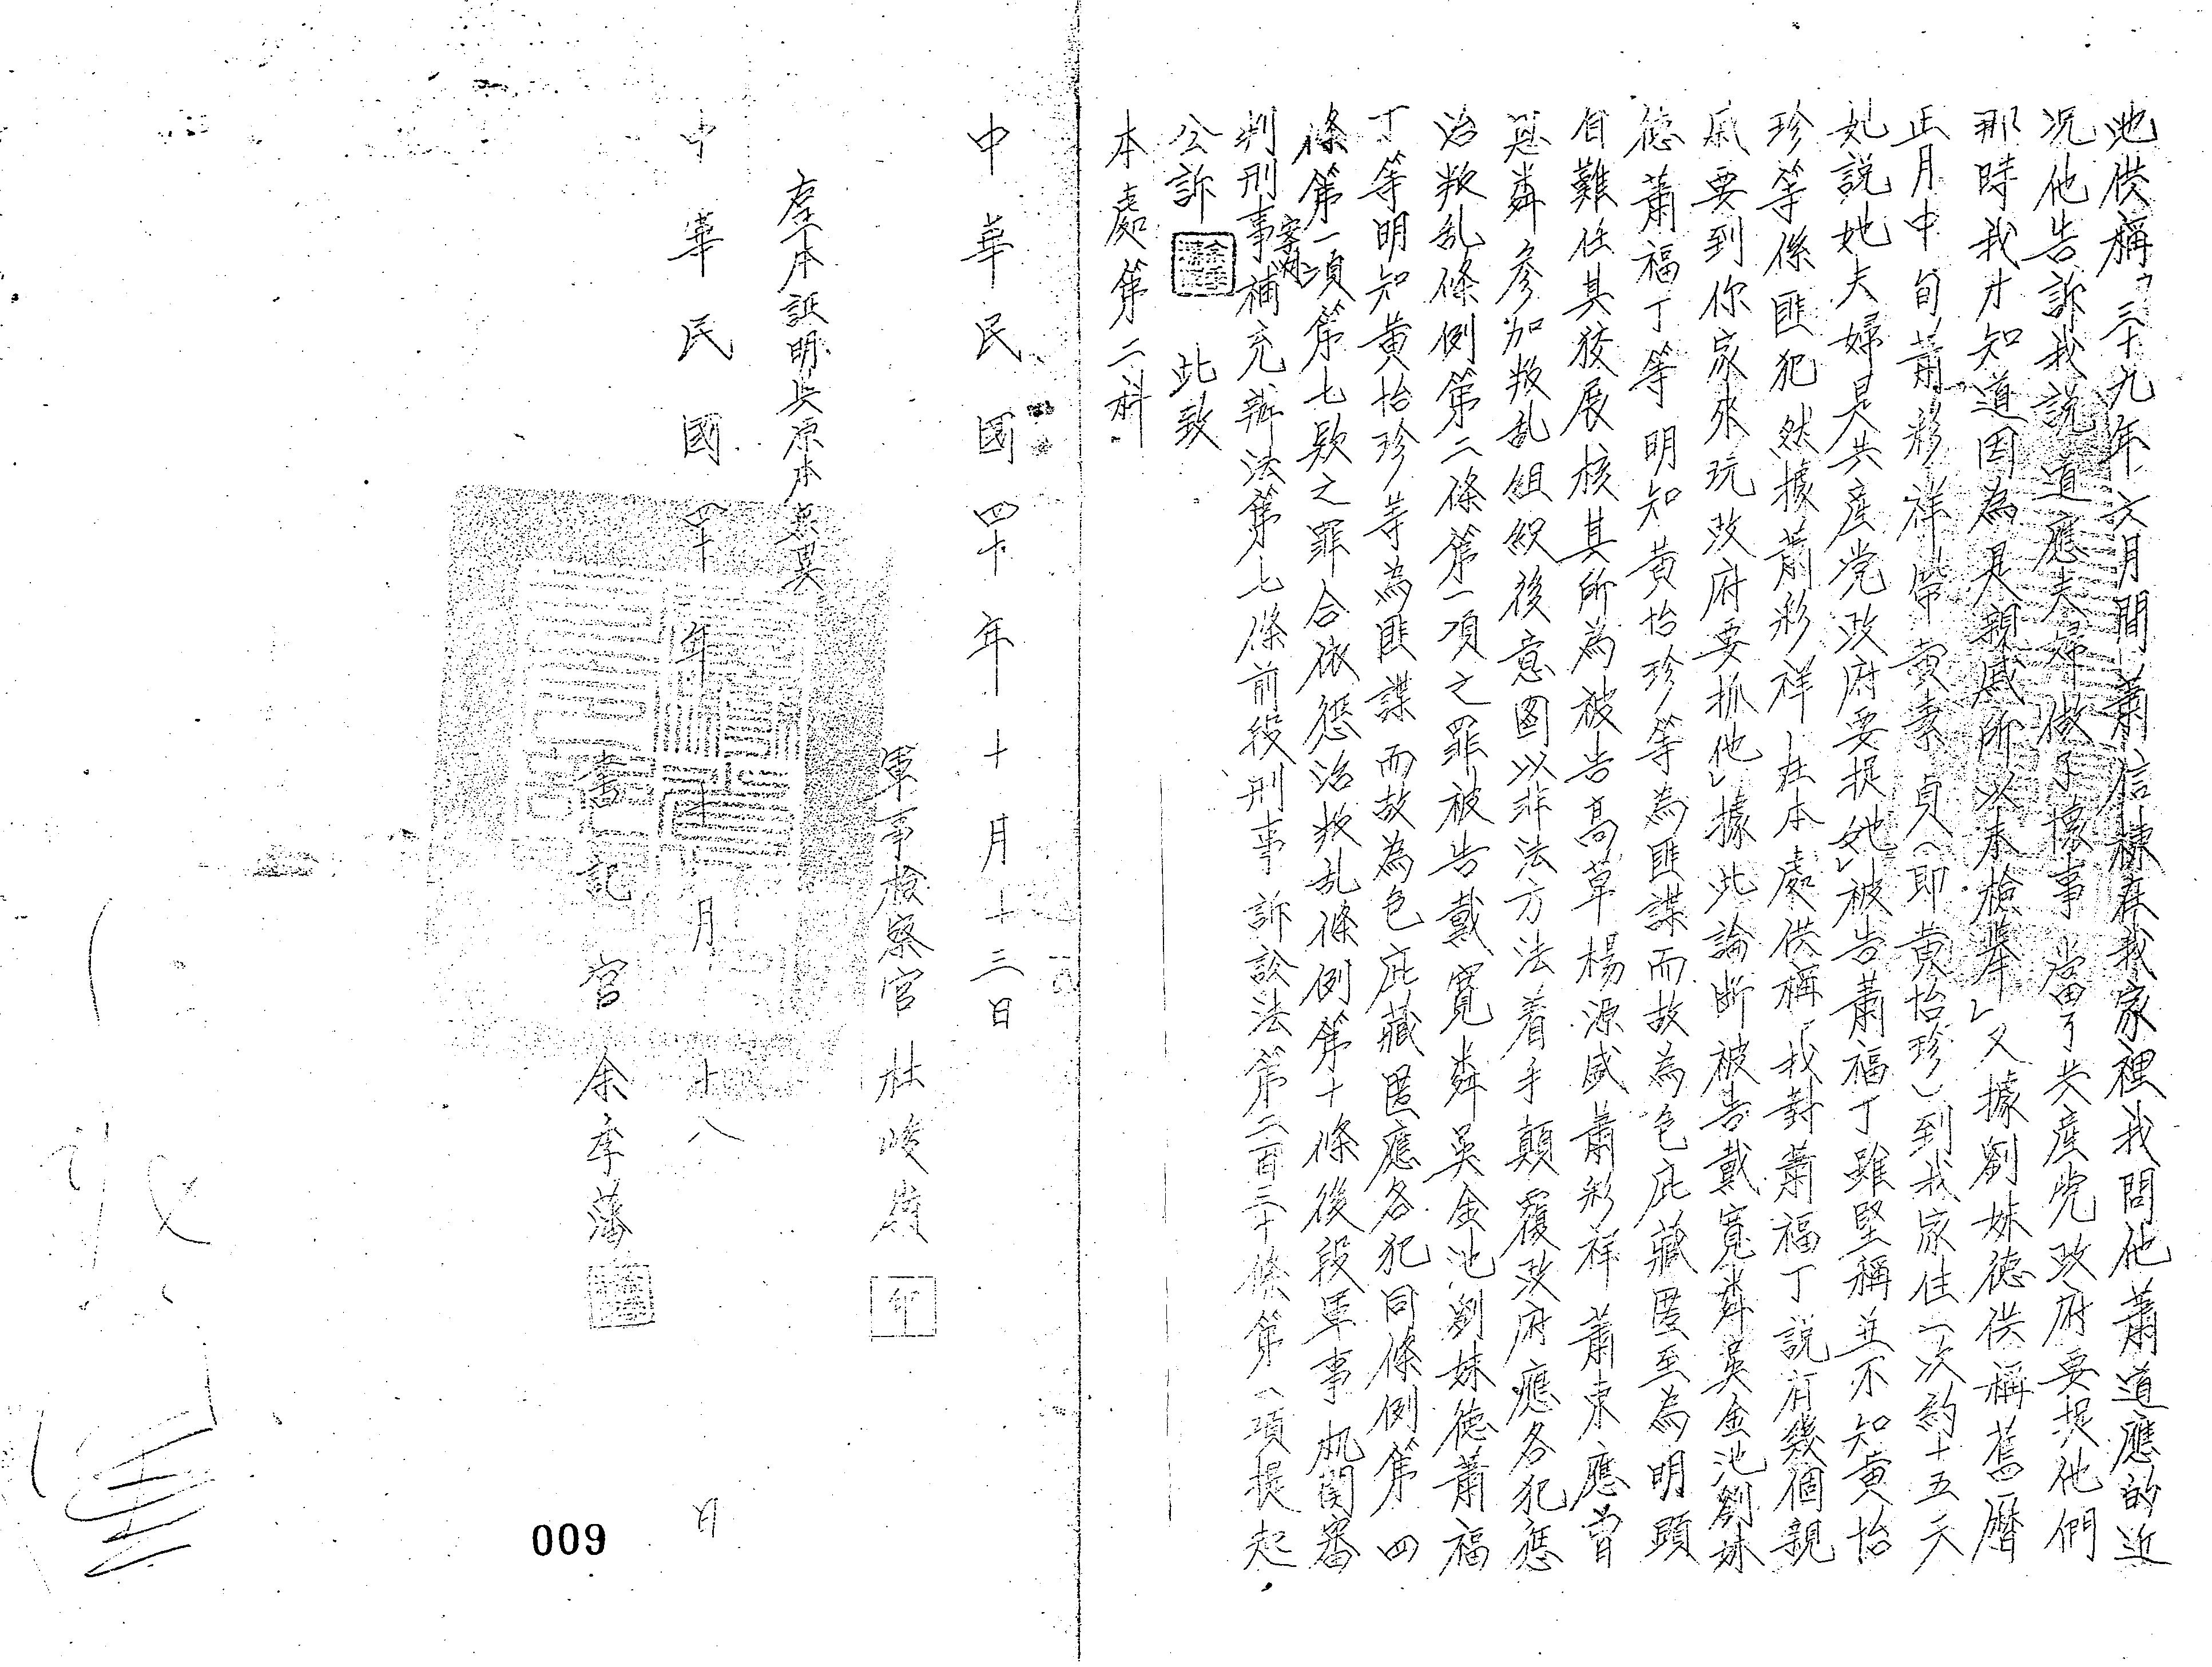 池供稱「三十九年六月間蕭信棣在我家裡我問他蕭道應的近
况他告訴我説道應夫婦做了壞事當了共產党政府要捉他們
那時我才知道因為是親戚所以未檢舉」又據劉妹德供稱舊曆
正月中旬蕭彩祥帶黃素貞(即黃怡珍)到我家住一次約十五天
她説她夫婦是共產党政府要捉她」被告蕭福丁雖堅稱並不知黃怡
珍等係匪犯然據蕭彩祥在本處供稱「我對蕭福丁説有幾個親
戚要到你家來玩政府要抓他」據此論断被告戴寬粦吳金池劉妹
德蕭福丁等明知黃怡珍等為匪諜而故為包庇藏匿至為明顕
自難任其發展核其所為被告高草楊源盛蕭彩祥蕭東應曾
恩粦參加叛乱組織後意圖以非法方法着手顛覆政府應各犯懲
治叛乱條例第二條第一項之罪被告戴寬粦吳金池劉妹德蕭福
丁等明知黃怡珍等為匪諜而故為包庇藏匿應各犯同條例第四
條第一項第七款之罪合依懲治叛乱條例第十條後段軍事机関審
判刑事案件補充辦法第七條前段刑事訴訟法第二百三十條第一項提起
公訴 此致
本處第二科
中華民國四十年十月十三日
軍事檢察官 杜峻嶺 印
本証明與原本無異
中華民國四十年十月十八日
書記官 余季藩
009